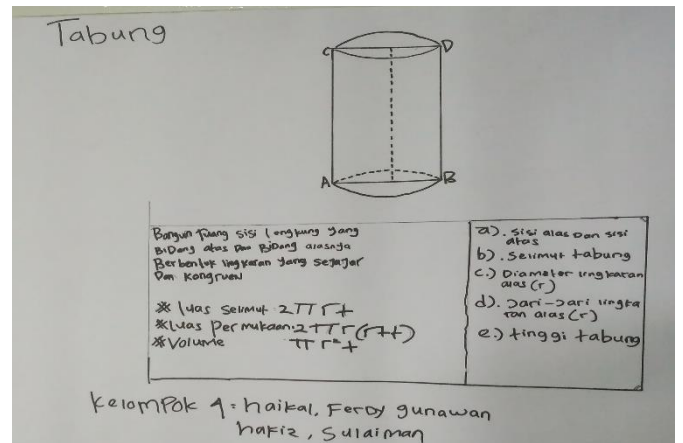 Tabung
C D
A B
Bangun ruang sisi lengkung yang
BiDang atas Dan BiDang alasnya
Berbentuk lingkaran yang sejajar
Dan Kongruen
* luas selimut 2πrt
* luas permukaan: 2πr(r+t)
* Volume πr²t
a). sisi alas Dan sisi
atas
b). selimut tabung
c.) Diameter lingkaran
alas (r)
d). Jari-Jari lingka
ran alas (r)
e.) tinggi tabung
Kelompok 4 = haikal, Ferdy gunawan
hafiz, Sulaiman